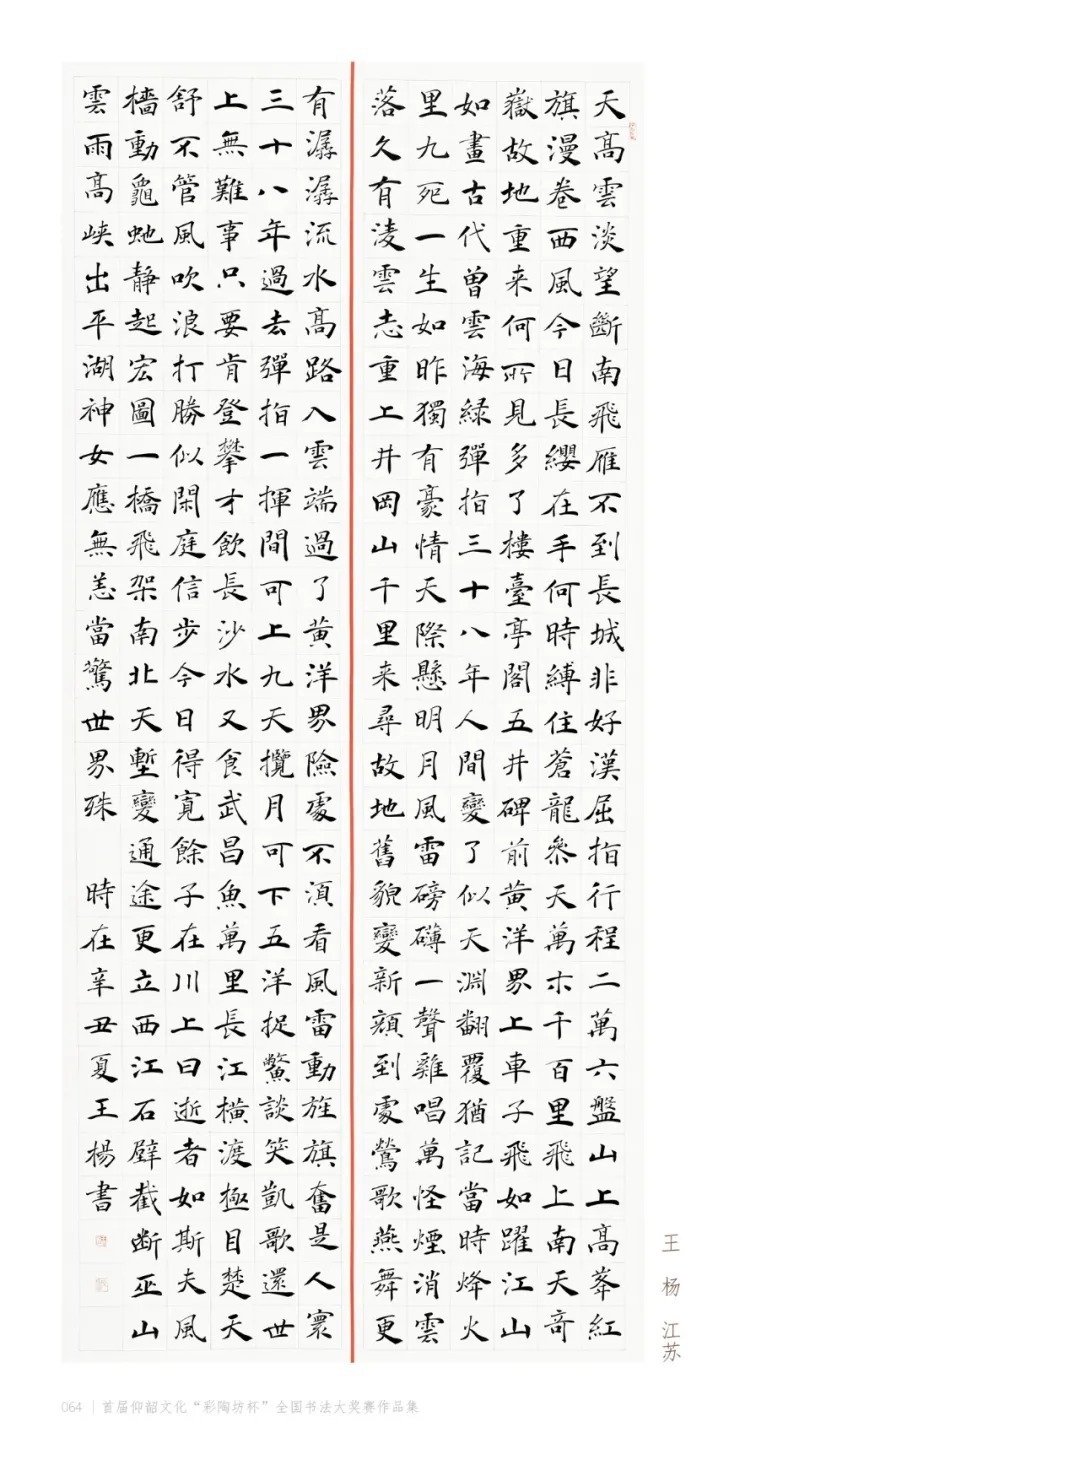 天高雲淡望斷南飛雁不到長城非好漢屈指行程二萬六盤山上高峯紅
旗漫卷西風今日長纓在手何時縛住蒼龍參天萬木千百里飛上南天奇
嶽故地重来何所見多了樓臺亭閣五井碑前黄洋界上車子飛如躍江山
如畫古代曾雲海緑彈指三十八年人間變了似天淵翻覆猶記當時烽火
里九死一生如昨獨有豪情天際懸明月風雷磅礴一聲雞唱萬怪煙消雲
落久有凌雲志重上井岡山千里来尋故地舊貌變新顔到處鶯歌燕舞更
有潺潺流水高路入雲端過了黄洋界險處不須看風雷動旌旗奮是人寰
三十八年過去彈指一揮間可上九天攬月可下五洋捉鱉談笑凱歌還世
上無難事只要肯登攀才飲長沙水又食武昌魚萬里長江橫渡極目楚天
舒不管風吹浪打勝似閑庭信步今日得寬餘子在川上曰逝者如斯夫風
檣動龜虵靜起宏圖一橋飛架南北天塹變通途更立西江石壁截断巫山
雲雨高峡出平湖神女應無恙當驚世界殊 時在辛丑夏王楊書
王 杨 江苏
064 | 首届仰韶文化“彩陶坊杯”全国书法大奖赛作品集